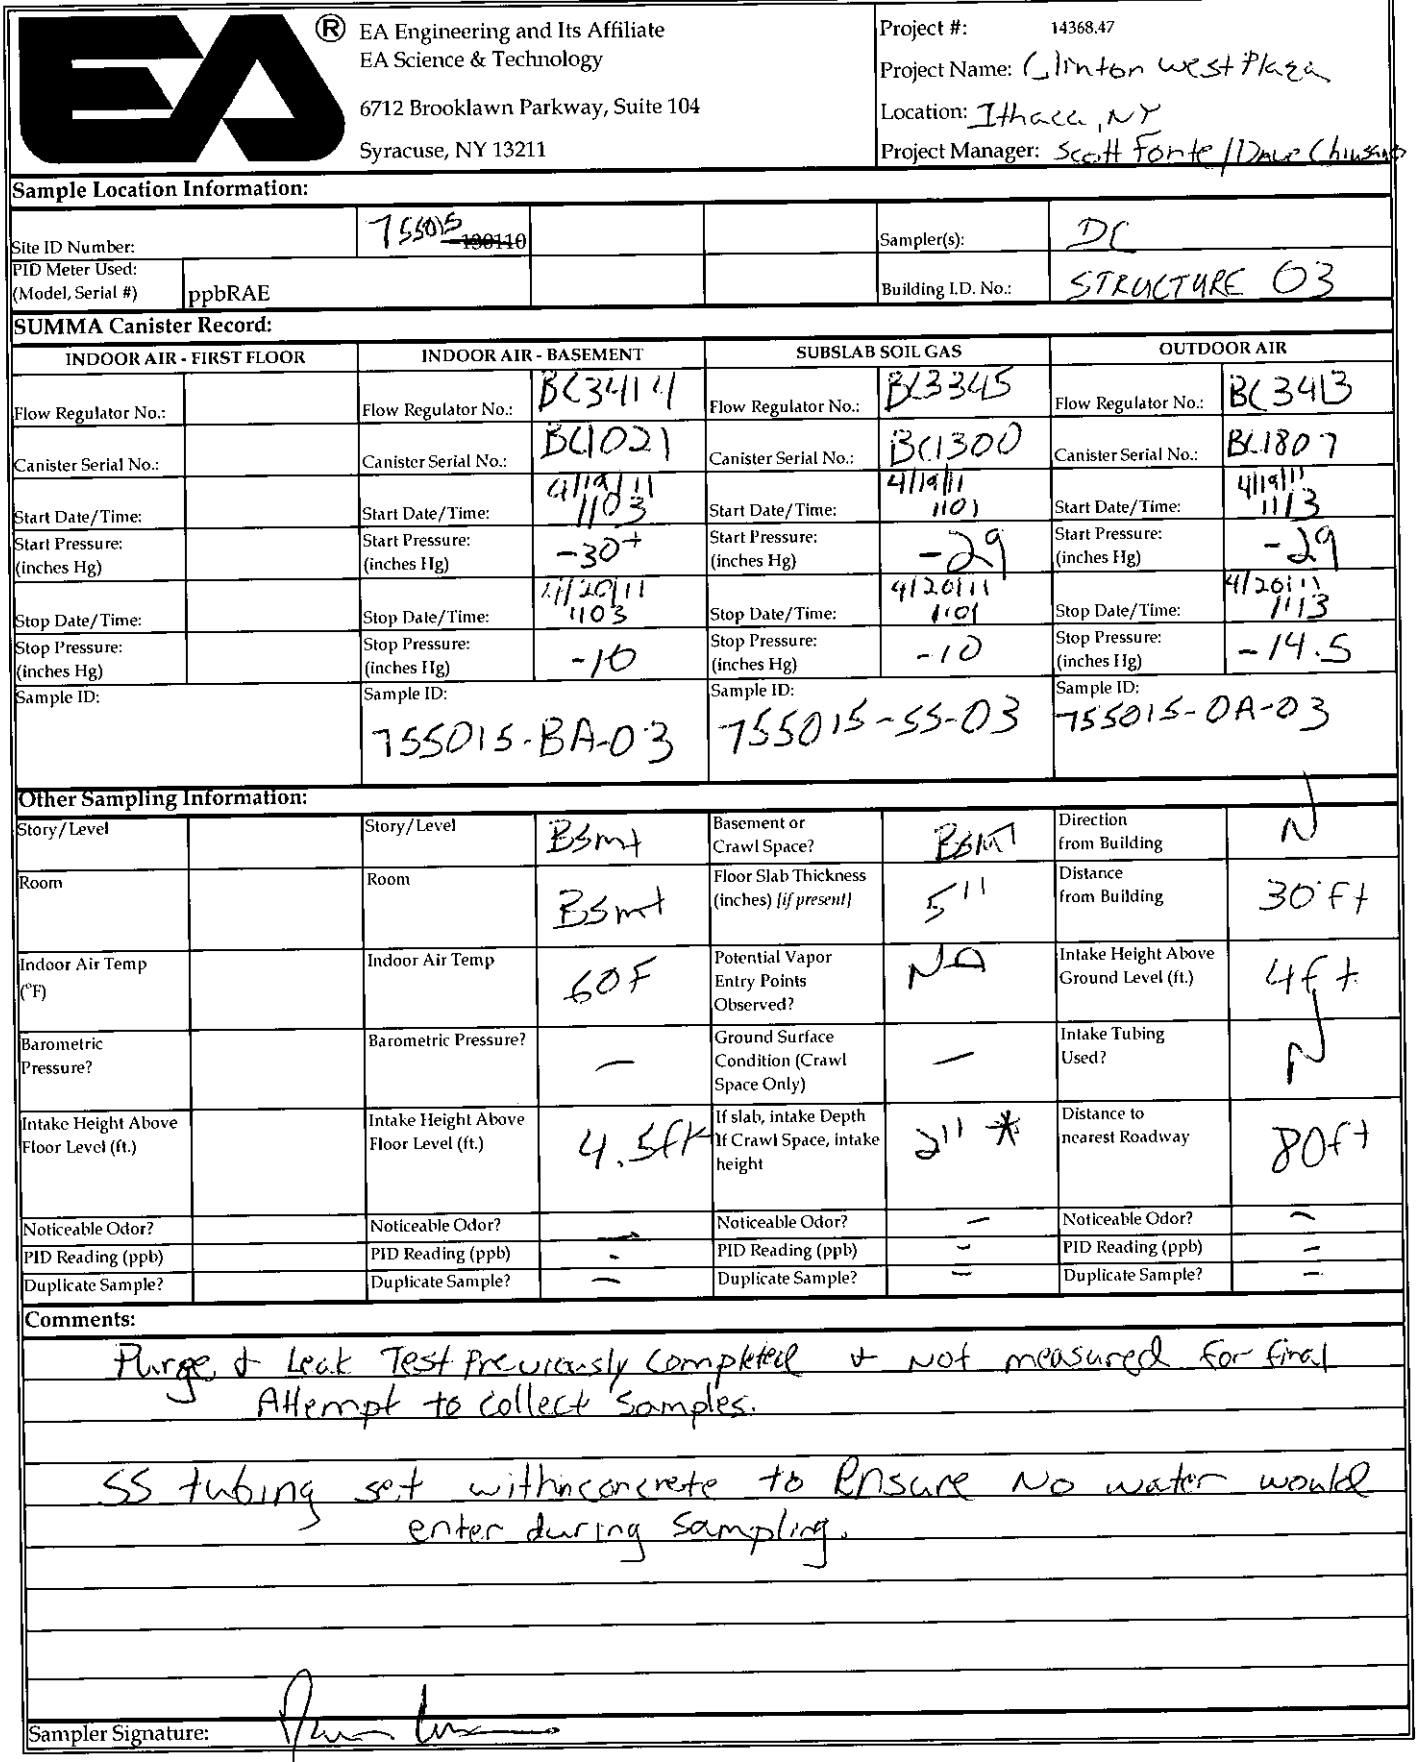 EA ®
EA Engineering and Its Affiliate
EA Science & Technology
6712 Brooklawn Parkway, Suite 104
Syracuse, NY 13211
Project #: 14368.47
Project Name: Clinton West Plaza
Location: Ithaca, NY
Project Manager: Scott Fonte / Dave
Sample Location Information:
Site ID Number: 755015 130110 Sampler(s): DC
PID Meter Used:
(Model, Serial #) ppbRAE Building I.D. No.: STRUCTURE 03
SUMMA Canister Record:
INDOOR AIR - FIRST FLOOR INDOOR AIR - BASEMENT SUBSLAB SOIL GAS OUTDOOR AIR
Flow Regulator No.: Flow Regulator No.: BC3414 Flow Regulator No.: BC3345 Flow Regulator No.: BC3413
Canister Serial No.: Canister Serial No.: BC1021 Canister Serial No.: BC1300 Canister Serial No.: BC1807
4/19/11 4/19/11 4/19/11
Start Date/Time: Start Date/Time: 1103 Start Date/Time: 1101 Start Date/Time: 1113
Start Pressure: Start Pressure: Start Pressure: Start Pressure:
(inches Hg) (inches Hg) -30+ (inches Hg) -29 (inches Hg) -29
4/20/11 4/20/11 4/20/11
Stop Date/Time: Stop Date/Time: 1103 Stop Date/Time: 1101 Stop Date/Time: 1113
Stop Pressure: Stop Pressure: Stop Pressure: Stop Pressure:
(inches Hg) (inches Hg) -10 (inches Hg) -10 (inches Hg) -14.5
Sample ID: Sample ID: Sample ID: Sample ID:
755015-BA-03 755015-SS-03 755015-OA-03
Other Sampling Information:
Story/Level Story/Level Bsmt Basement or Direction
Crawl Space? BSMT from Building N
Room Room Bsmt Floor Slab Thickness Distance
(inches) [if present] 5" from Building 30 ft
Indoor Air Temp Indoor Air Temp 60F Potential Vapor Intake Height Above
(°F) Entry Points NA Ground Level (ft.) 4ft
Observed?
Barometric Barometric Pressure? — Ground Surface Intake Tubing
Pressure? Condition (Crawl — Used? N
Space Only)
Intake Height Above Intake Height Above If slab, intake Depth Distance to
Floor Level (ft.) Floor Level (ft.) 4.5ft If Crawl Space, intake 2" * nearest Roadway 80ft
height
Noticeable Odor? Noticeable Odor? — Noticeable Odor? — Noticeable Odor? —
PID Reading (ppb) PID Reading (ppb) - PID Reading (ppb) - PID Reading (ppb) -
Duplicate Sample? Duplicate Sample? — Duplicate Sample? — Duplicate Sample? -
Comments:
Purge & Leak Test Previously Completed & Not measured for final
Attempt to collect samples.
SS tubing set within concrete to Ensure No water would
enter during sampling.
Sampler Signature: